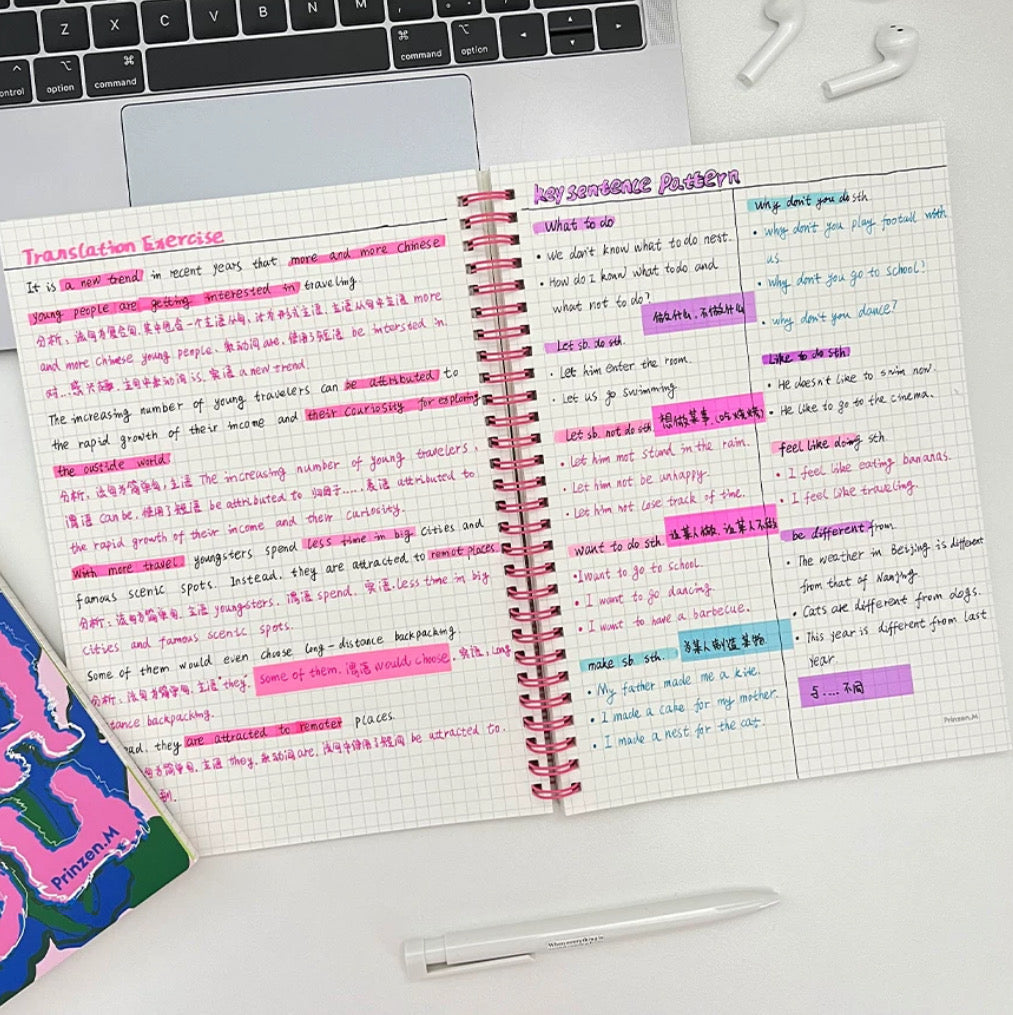 Z X C V B N M
control option command command option
Translation Exercise
It is a new trend in recent years that more and more Chinese
young people are getting interested in traveling.
分析：该句为复合句，其中包含一个主语从句，it为形式主语，主语从句中主语 more
and more Chinese young people，系动词are，使用了短语 be intersted in.
对…感兴趣，主句中系动词is，宾语a new trend.
The increasing number of young travelers can be attributed to
the rapid growth of their income and their couriosity for exploring
the oustide world
分析：该句为简单句，主语 The increasing number of young travelers,
谓语 can be，使用了短语 be attributed to 归因于……，表语 attributed to
the rapid growth of their income and their curiosity.
With more travel youngsters spend less time in big cities and
famous scenic spots. Instead, they are attracted to remot places.
分析：该句为简单句，主语 youngsters，谓语 spend，宾语 less time in big
cities and famous scenic spots.
Some of them would even choose long-distance backpacking.
分析：该句为简单句，主语"they". some of them，谓语would choose，宾语，Long
tance backpacking.
ad, they are attracted to remoter places.
句为简单句，主语 they，系动词are，该句中使用了短词 be attracted to，
到.
Key sentence Pattern
What to do
• We don't know what to do nest.
• How do I konw what todo and
what not to do?
做什么，不做什么
Let sb. do sth
• Let him enter the room.
• Let us go swimming
想做某事.(吃烧烤)
Let sb. not do sth
• Let him mot stand in the rain.
• Let him not be unhappy.
• Let him not lose track of time.
让某人做，让某人不做
want to do sth.
• I want to go to school.
• I want to go dancing.
• I want to have a barbecue.
为某人制造某物
make sb. sth.
• My father made me a kite.
• I made a cake for my mother.
• I made a nest for the cat.
Why don't you do sth
• why don't you play footall with
us
• why don't you go to school?
• why don't you dance?
Like to do sth
• He doesn't like to swim now.
• He like to go to the cinema.
feel like doing sth
• I feel like eating bananas.
• I feel like traveling.
be different from
• The weather in Beijing is different
from that of Nanjing
• Cats are different from dogs.
• This year is different from last
year
与……不同
Prinzen.M
Prinzen.M